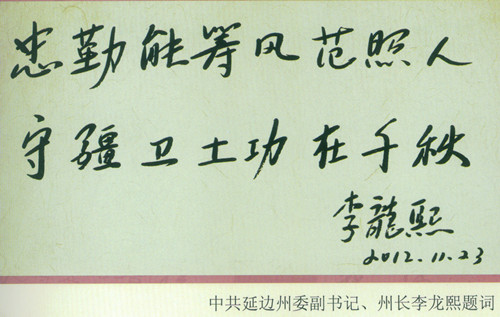 忠勤能筹风范照人
守疆卫土功在千秋
李龍熙
2012.11.23
中共延边州委副书记、州长李龙熙题词